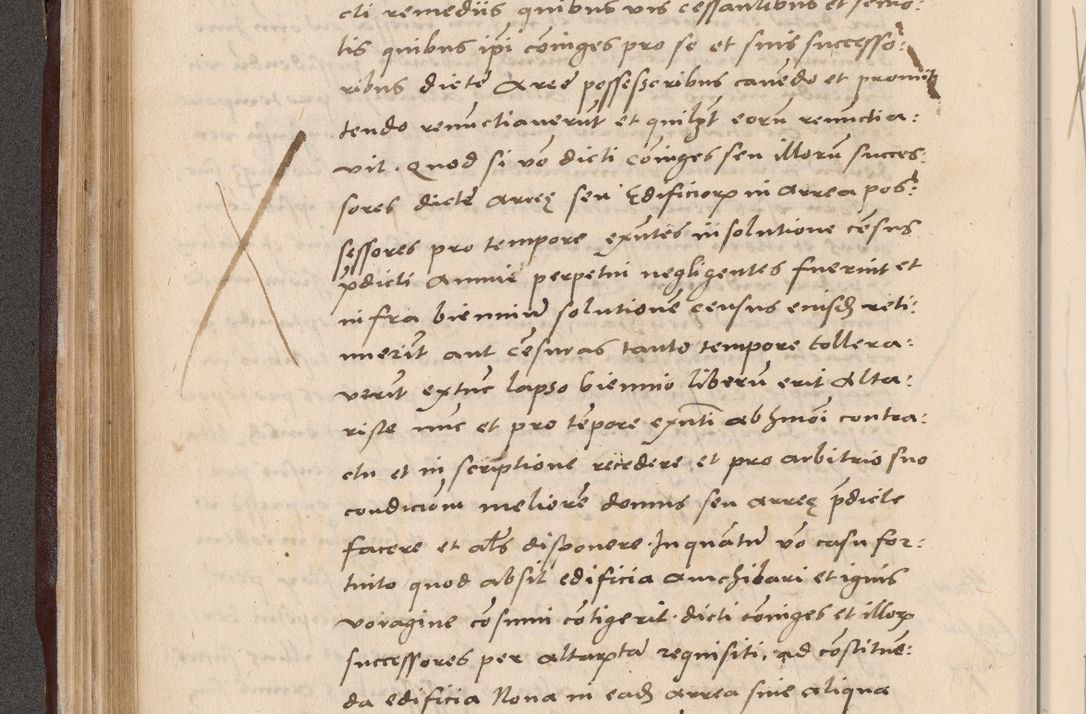 cti remediis quibus vis cessantibus et remo:
tis quibus ip̄i cōiuges pro se et suis successo:
ribus dictę Areę possessoribus cavēdo et promit
tendo renūctiaverūt et quilꝫt eorū renūctia:
vit. Quod si vō dicti cōiuges seu illorū succes:
sores dictę areę seu Ędificiorꝝ in arrea pos:
sessores pro tempore exn̄tes in solutione cēsus
p̄dicti annui perpetui negligentes fuerint et
infra bienniū solutionē census eiusdꝫ reti:
nuerīt aut cēsuras tanto tempore tollera:
verīt extūc lapso biennio liberū erit Alta:
riste nūc et pro tēpore exn̄ti ab hmōi contra:
ctu et inscriptione recedere et pro arbitrio suo
condicionē meliorē domus seu arreę p̄dicte
facere et als̄ disponere. Inquātū vō casu for:
tuito quod absit edificia annihilari et ignis
voragine cōsumi cōtigerit dicti cōiuges et illorꝝ
successores per altarꝝtā requisiti, ad cōstituē:
da edificia Nova in eadꝫ arrea sine aliqua